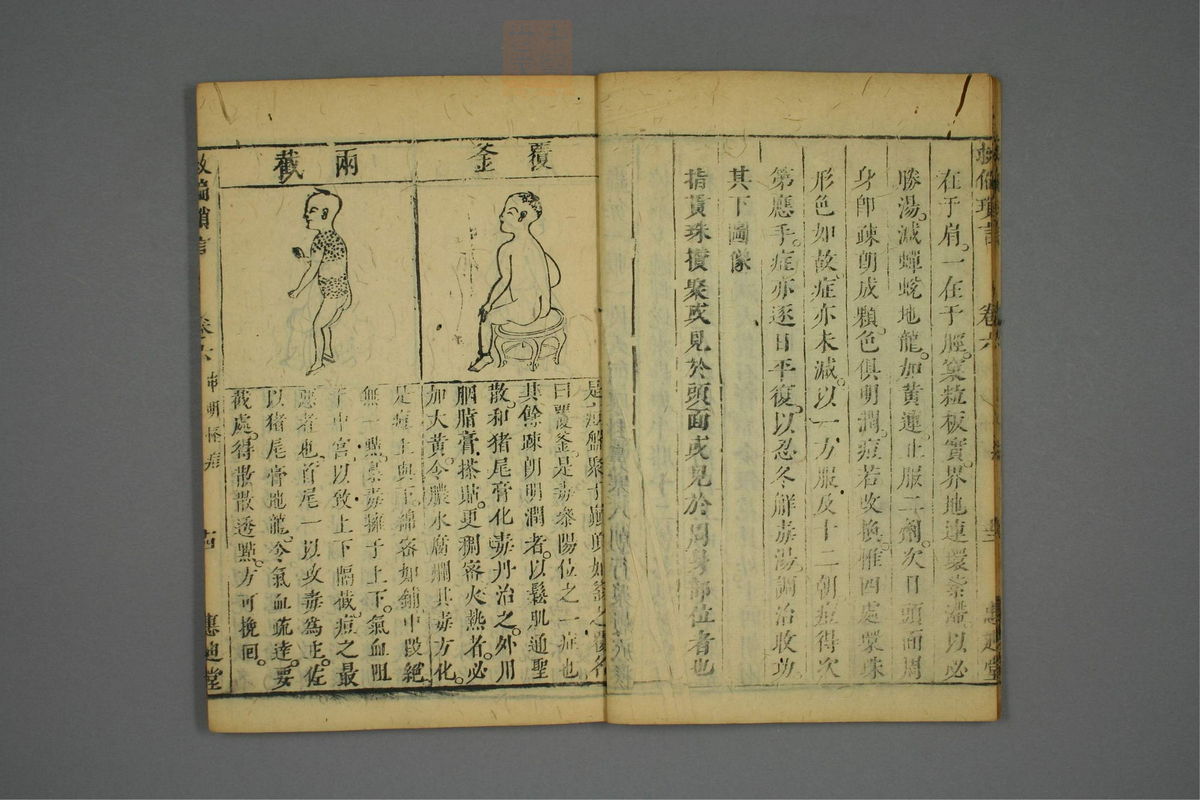 在于肩。一在于脛。窠粒板實。界地連環紊滯。以必
勝湯。減蟬蛻地龍。加黃連。止服二劑。次日頭面周
身卽疎朗成顆。色俱明潤。痘若改換。惟四處窠珠
形色如故。症亦未減。以一方服及十二朝。痘得次
第應手。症亦逐日平復。以忍冬解毒湯。調治收功。
其下圖像
指貫珠攢聚或見於頭面或見於周身部位者也
卷六
惠迪堂
覆釜
兩截
是痘盤聚于巔頂。如釜之覆。名
曰覆釜。是毒參陽位之一症也
其餘疎朗明潤者。以鬆肌通聖
散。和猪尾膏化毒丹治之。外用
胭脂膏搽貼。更稠密火熱者。必
加大黃。令膿水腐爛。其毒方化。
是痘上與下綿密如鋪。中段絕
無一點。是毒擁于上下。氣血阻
于中宮。以致上下隔截。痘之最
惡者也。首尾一以攻毒爲主。佐
以猪尾膏地龍。令氣血疏達。要
截處。得散散透點。方可挽回。
救偏瑣言
卷六
十四
惠迪堂